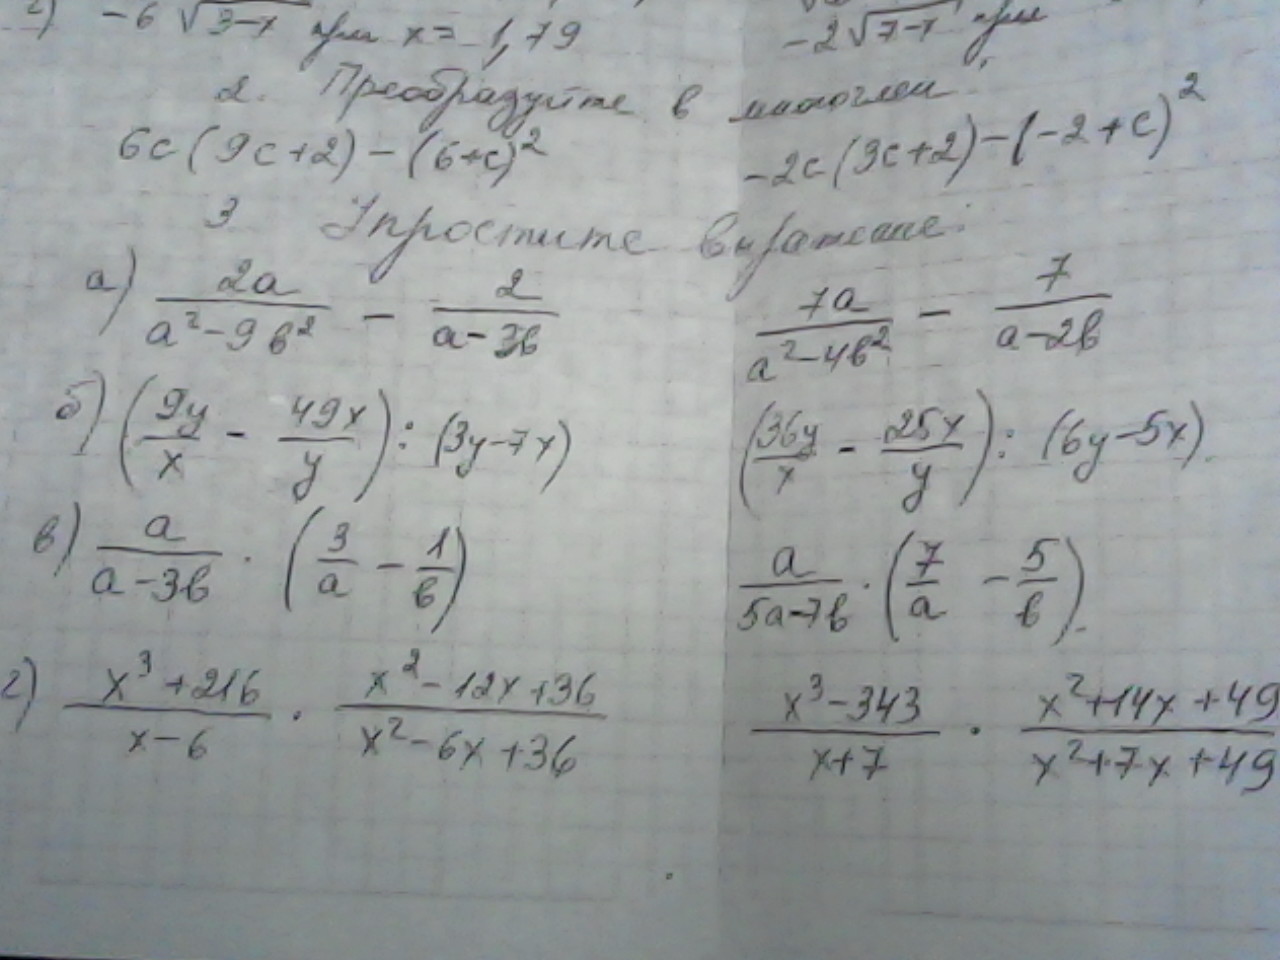 г) -6 √(3-x) при x = -1,79
-2√(7-x) при
2. Преобразуйте в многочлен:
6c(9c+2) - (6+c)²
-2c(3c+2) - (-2+c)²
3 Упростите выражение:
а) 2a/(a²-9b²) - 2/(a-3b)
7a/(a²-4b²) - 7/(a-2b)
б) (9y/x - 49x/y) : (3y-7x)
(36y/x - 25x/y) : (6y-5x).
в) a/(a-3b) · (3/a - 1/b)
a/(5a-7b) · (7/a - 5/b).
г) (x³+216)/(x-6) · (x²-12x+36)/(x²-6x+36)
(x³-343)/(x+7) · (x²+14x+49)/(x²+7x+49)